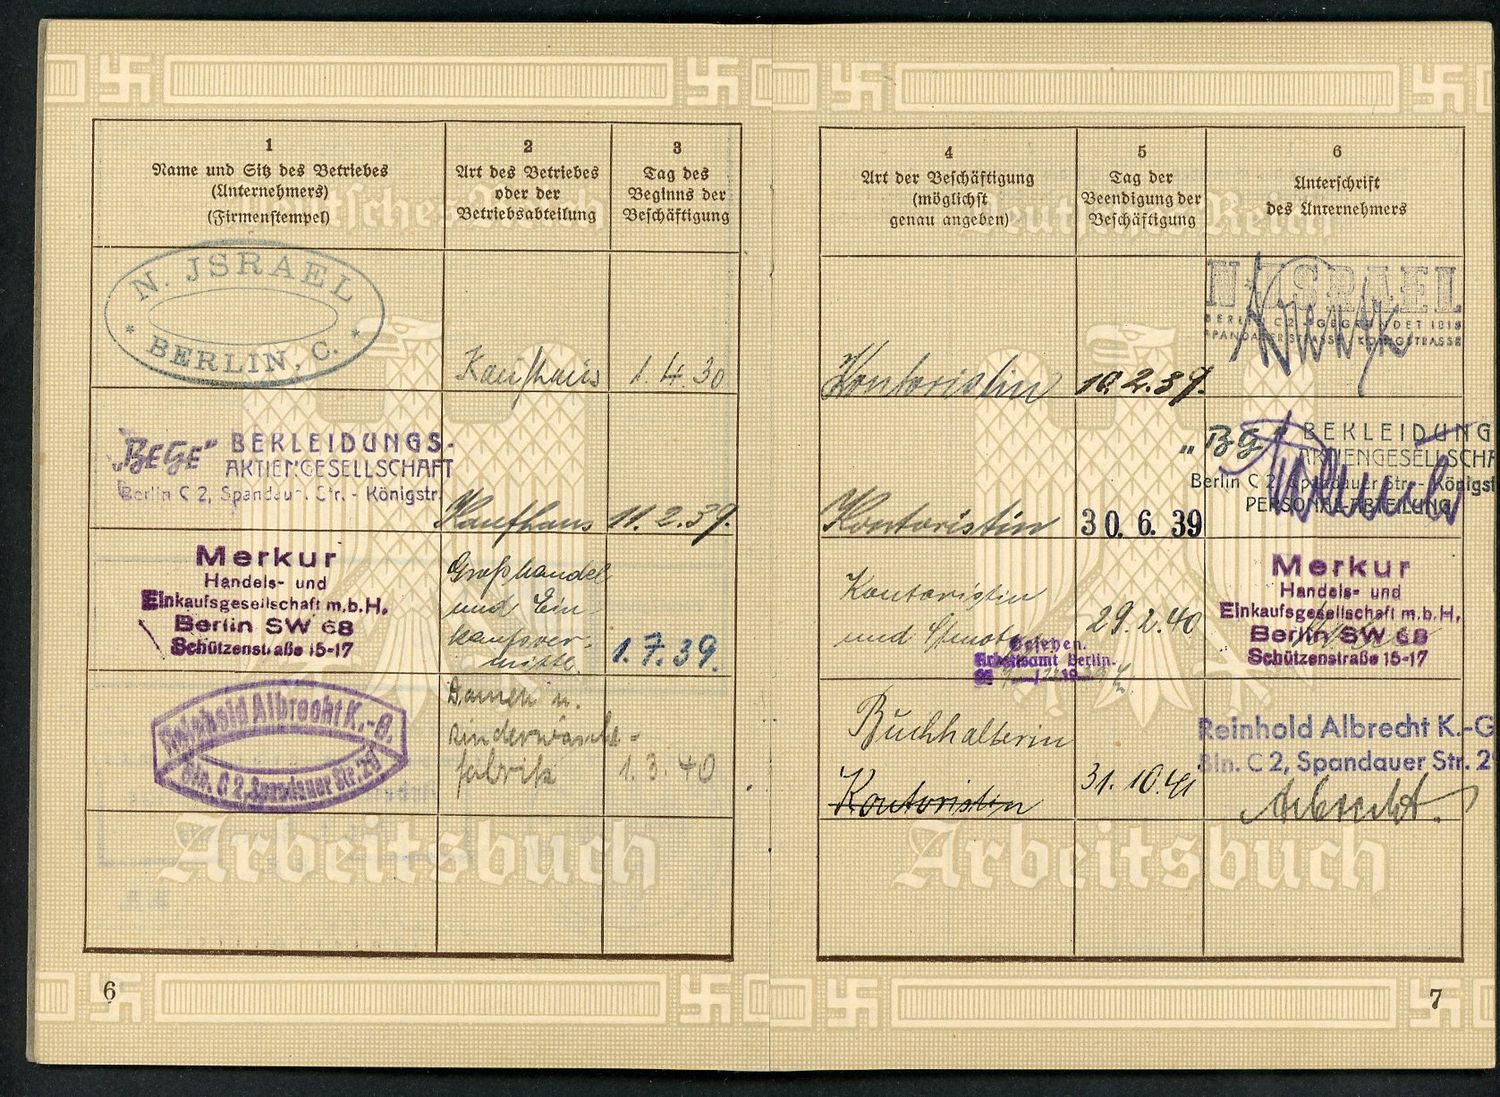 1
Name und Sitz des Betriebes
(Unternehmers)
(Firmenstempel)
2
Art des Betriebes
oder der
Betriebsabteilung
3
Tag des
Beginns der
Beschäftigung
N. JSRAEL
* BERLIN, C. *
Kaufhaus
1.4.30
"BEGE" BEKLEIDUNGS-
AKTIENGESELLSCHAFT
Berlin C 2, Spandauer Str. - Königstr.
Kaufhaus
11.2.39.
Merkur
Handels- und
Einkaufsgesellschaft m.b.H.
Berlin SW 68
Schützenstraße 15-17
Großhandel
und Ein-
kaufsver-
mittl.
1.7.39.
Reinhold Albrecht K.-G.
Bln. C 2, Spandauer Str. 26
Damen u.
Kinderwäsche-
fabrik
1.3.40
Arbeitsbuch
6
4
Art der Beschäftigung
(möglichst
genau angeben)
5
Tag der
Beendigung der
Beschäftigung
6
Unterschrift
des Unternehmers
Deutsches Reich
Kontoristin
10.2.39.
N. ISRAEL
BERLIN C 2 · GEGRÜNDET 1815
SPANDAUER STRASSE · KÖNIGSTRASSE
Kontoristin
30.6.39
BEKLEIDUNG
AKTIENGESELLSCHA
Berlin C 2, Spandauer Str. - Königst
PERSONAL-ABTEILUNG
Kontoristin
und
29.2.40
Gesehen.
Arbeitsamt Berlin.
Merkur
Handels- und
Einkaufsgesellschaft m.b.H.
Berlin SW 68
Schützenstraße 15-17
Buchhalterin
Kontoristin
31.10.41
Reinhold Albrecht K.-G
Bln. C 2, Spandauer Str. 2
Albrecht.
Arbeitsbuch
7